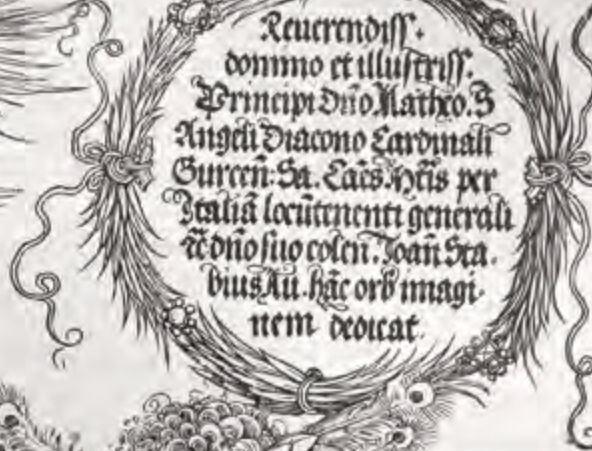 Reuerendiss.
domino et illustriss.
Principi Dño Matheo. S
Angeli Diacono Cardinali
Gurceñ: Sa. Caēs. Mtis per
Italiā locūtenenti generali
ac dño suo coleñ. Joañ Sta.
bius Au. hāc orb imagi
nem dedicat.